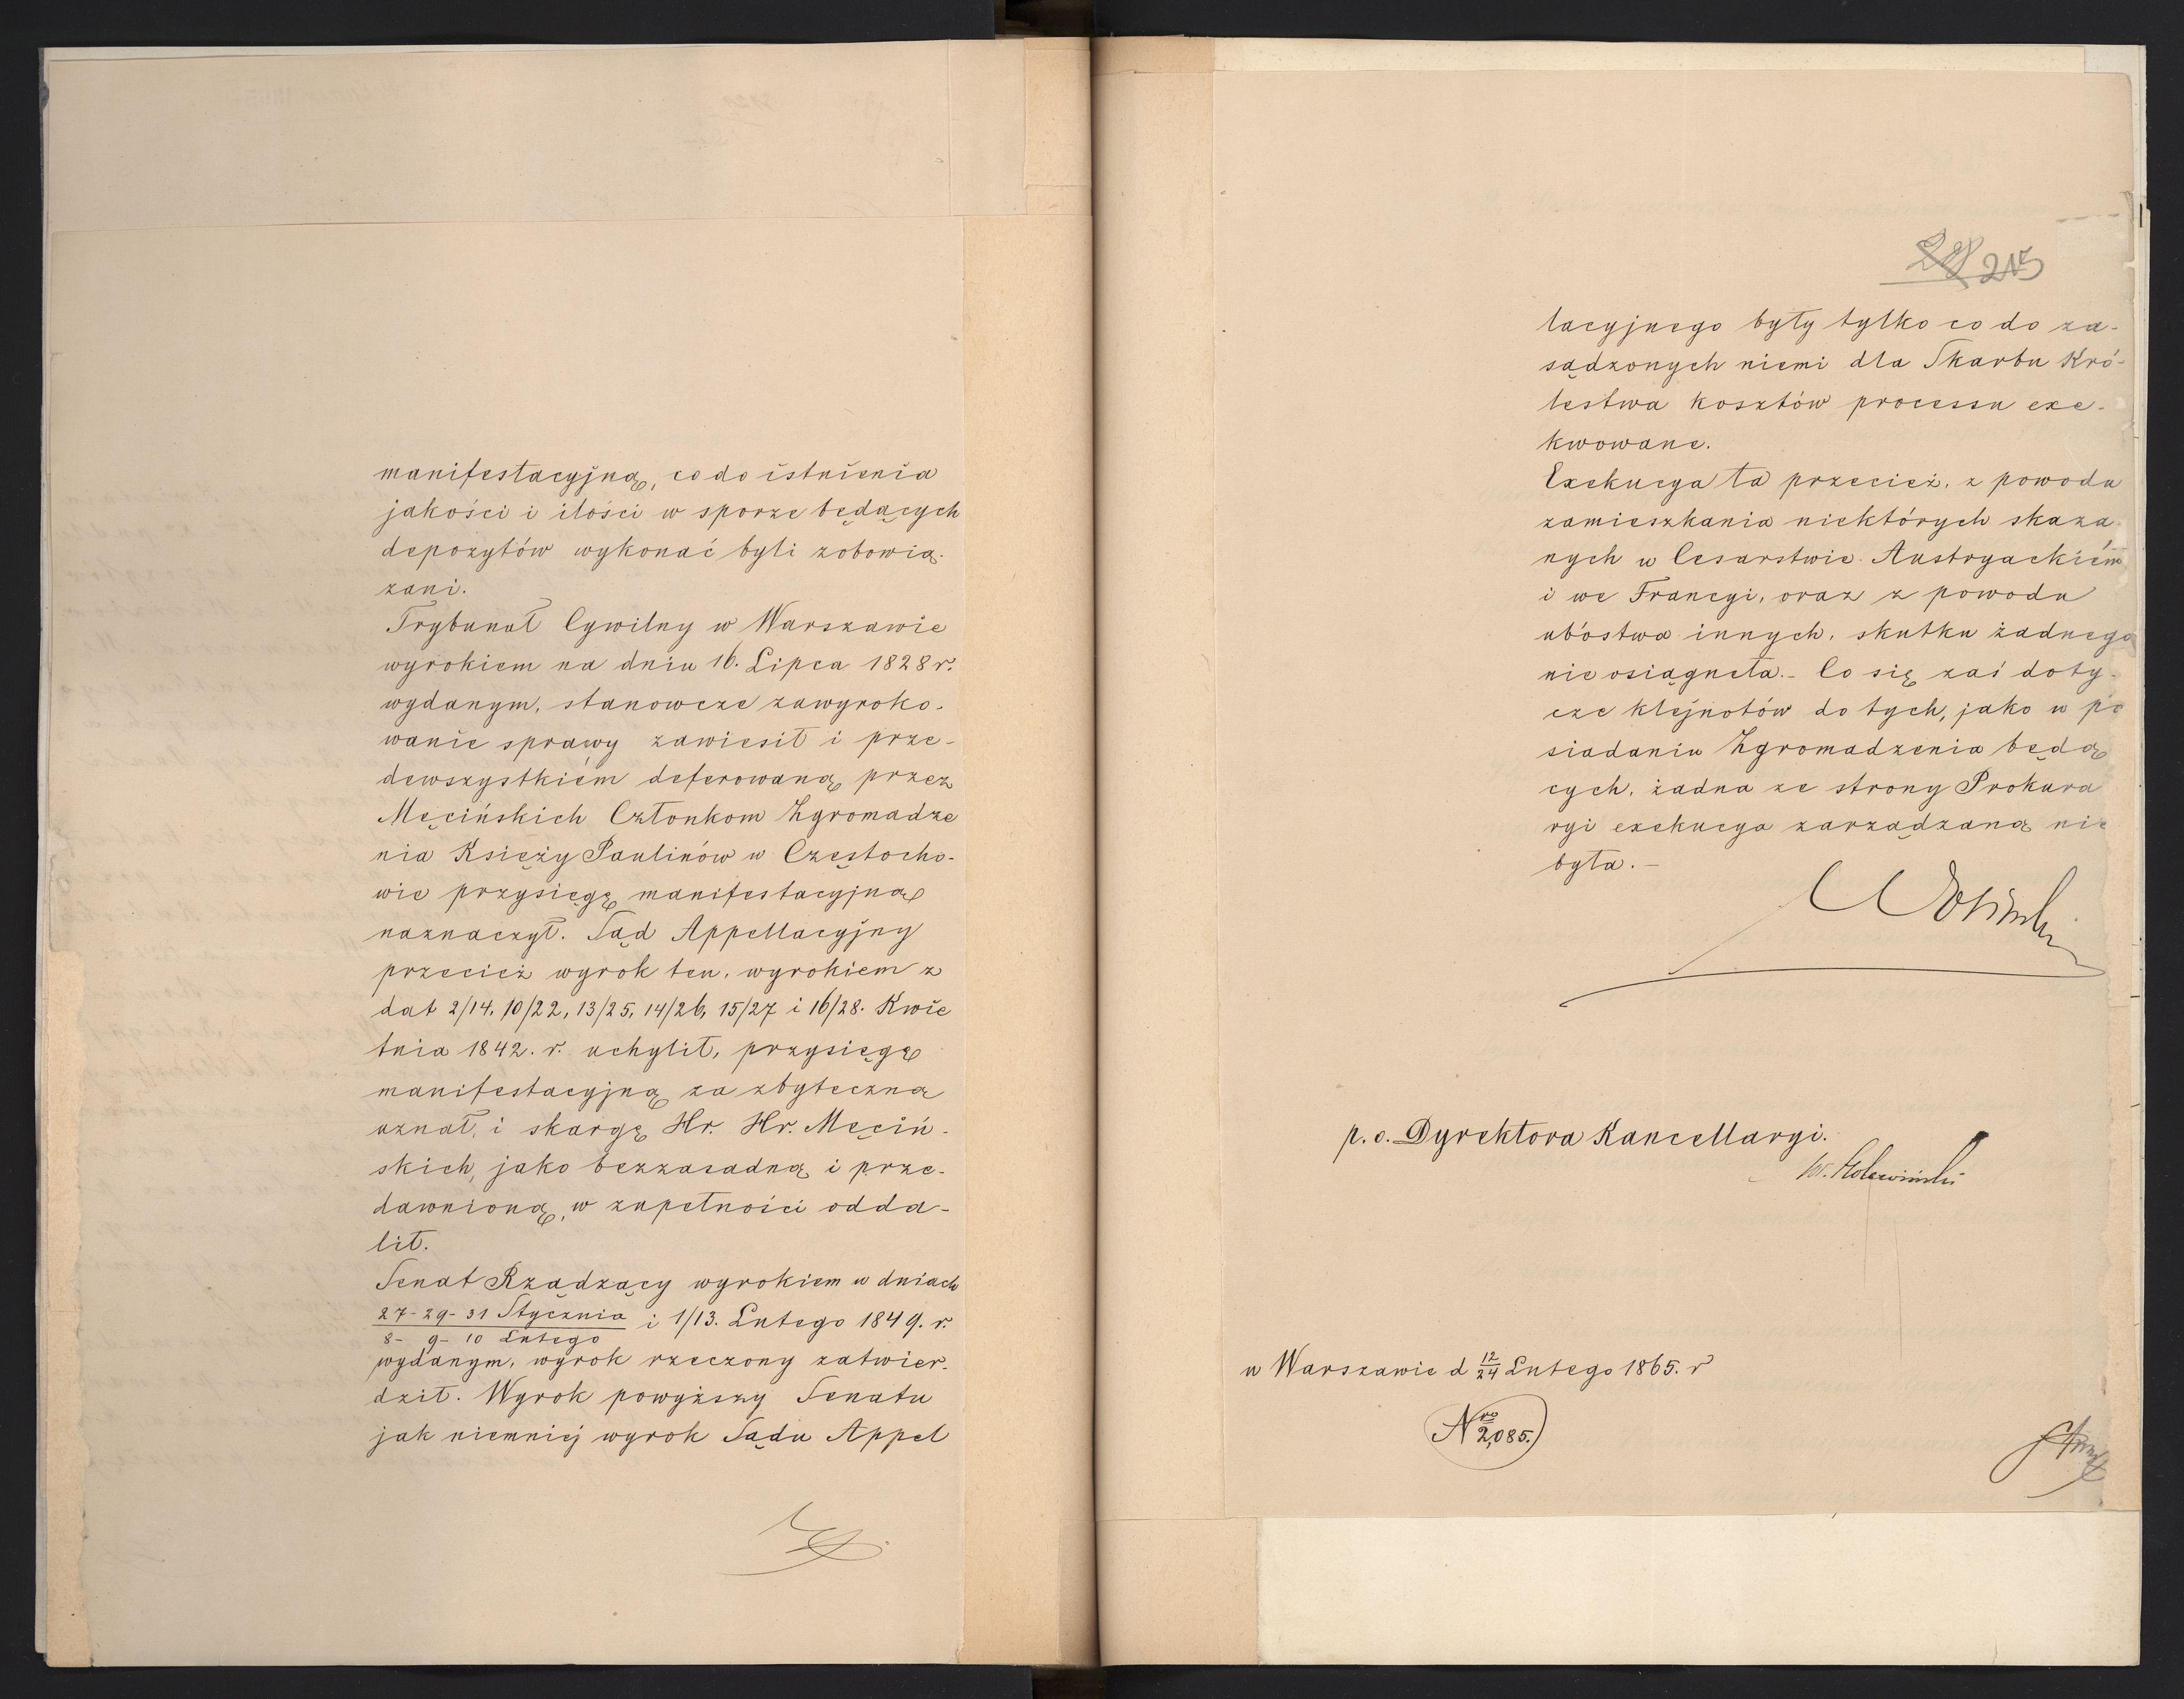 manifestacyjną, co do istnienia
jakości i ilości w sporze będących
depozytów wykonać byli zobowią-
zani.
Trybunał Cywilny w Warszawie
wyrokiem na dniu 16. Lipca 1828 r.
wydanym, stanowcze zawyroko-
wanie sprawy zawiesił i prze-
dewszystkiém deferowaną przez
Męcińskich Członkom Zgromadze
nia Księży Paulinów w Częstocho-
wie przysięgę manifestacyjną
naznaczył. Sąd Appellacyjny
przecież wyrok ten, wyrokiem z
dat 2/14, 10/22, 13/25, 14/26, 15/27 i 16/28. Kwie
tnia 1842. r. uchylił, przysięgę
manifestacyjną za zbyteczną
uznał, i skargę Hr. Hr. Męciń-
skich, jako bezzasadną i prze-
dawnioną, w zupełności odda-
lił.
Senat Rządzący wyrokiem w dniach
27-29-31 Stycznia / 8- 9- 10 Lutego i 1/13. Lutego 1849. r.
wydanym, wyrok rzeczony zatwier-
dził. Wyrok powyższy Senatu
jak niemniej wyrok Sądu Appel
215
lacyjnego były tylko co do za-
sądzonych niemi dla Skarbu Kró-
lestwa kosztów processu exe-
kwowane.
Exekucya ta przecież, z powodu
zamieszkania niektórych skaza-
nych w Cesarstwie Austryackiém
i we Francyi, oraz z powodu
ubóstwa innych, skutku żadnego
nie osiągneła.- Co się zaś doty-
cze klejnotów do tych, jako w po
siadaniu Zgromadzenia będą
cych, żadna ze strony Prokura
ryi exekucya zarządzaną nie
była.-
p. o. Dyrektora Kancellaryi.
w Warszawie d 12/24 Lutego 1865. r
Nro 2,085.